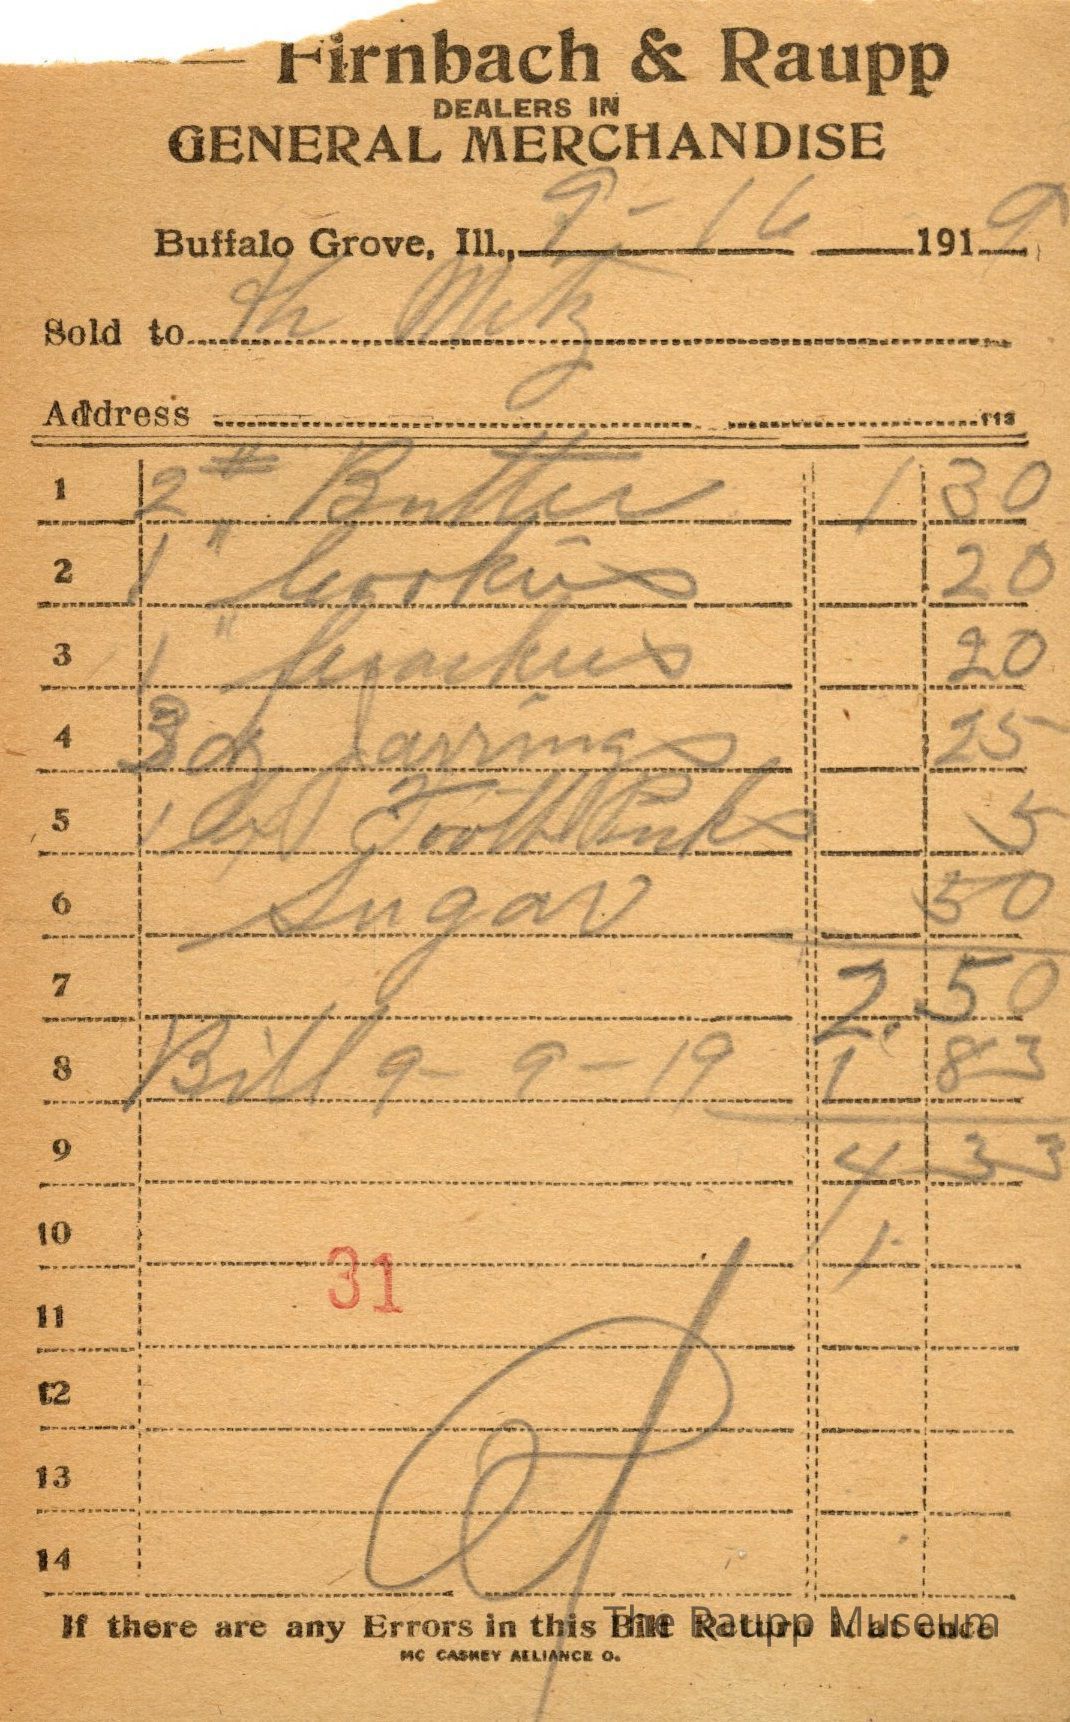 Firnbach & Raupp
DEALERS IN
GENERAL MERCHANDISE
Buffalo Grove, Ill., 9-16 1919
Sold to Metz
Address
1 2# Butter 1 30
2 1 " Cookies 20
3 1 " Crackers 20
4 3 dz Jarrings 25
5 1 Tooth Picks 5
6 Sugar 50
7 2.50
8 Bill 9-9-19 1 83
9 4 33
10 1
31
11
12
13
14
If there are any Errors in this Bill Return it at once
The Raupp Museum
MC CASKEY ALLIANCE O.